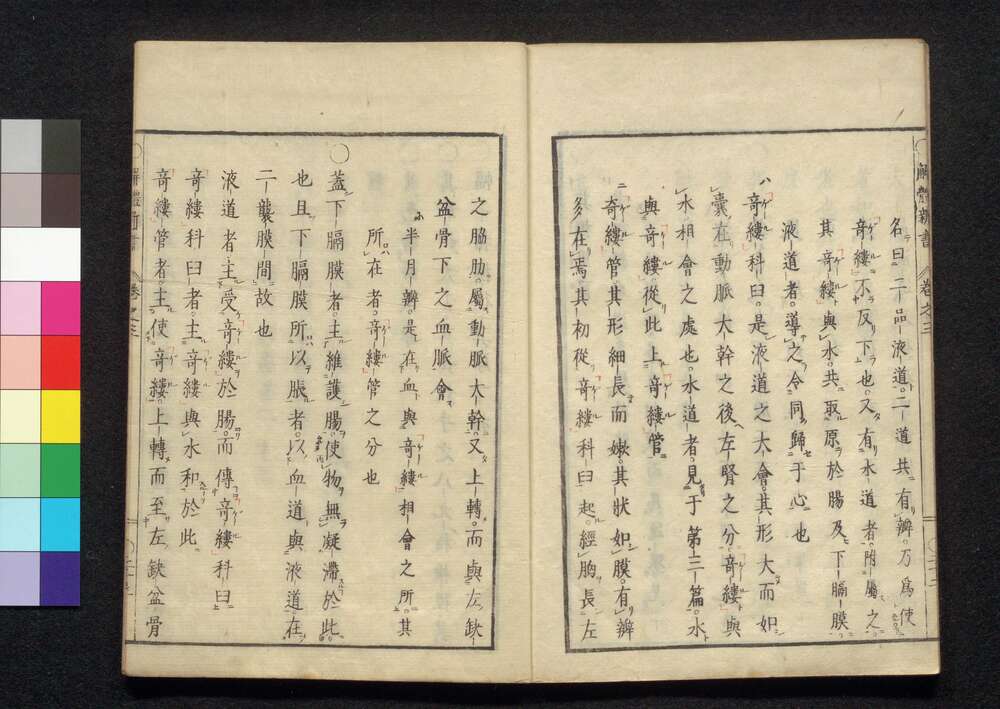 解體新書 卷之三
名曰二品液道。二道共有辨。乃爲使
奇縷不反下也。又有水道者。附屬之。
其奇縷與水共取原於腸及下膈膜。
液道者。導之令同歸于心也
ハ奇縷科臼。是液道之大會。其形大而如
囊。在動脈大幹之後。左腎之分。奇縷與
水相會之處也。水道者。見于第三篇。水
與奇縷從此上奇縷管。
ニ奇縷管其形細長而嫩。其狀如膜。有辨
多在焉。其初從奇縷科臼起。經胸長左
之脇肋。屬動脈大幹。又上轉。而與左缺
盆骨下之血脈會
ホ半月辨。是在血與奇縷相會之所。其
所在者。奇縷管之分也
〇蓋下膈膜者。主維護腸。使物無凝滯於此。
也。且下膈膜所以脹者。以血道與液道在
二襲膜間故也
液道者。主受奇縷於腸。而傳奇縷科臼
奇縷科臼者。主奇縷與水和於此
奇縷管者。主使奇縷上轉而至左缺盆骨
解體新書 卷之三